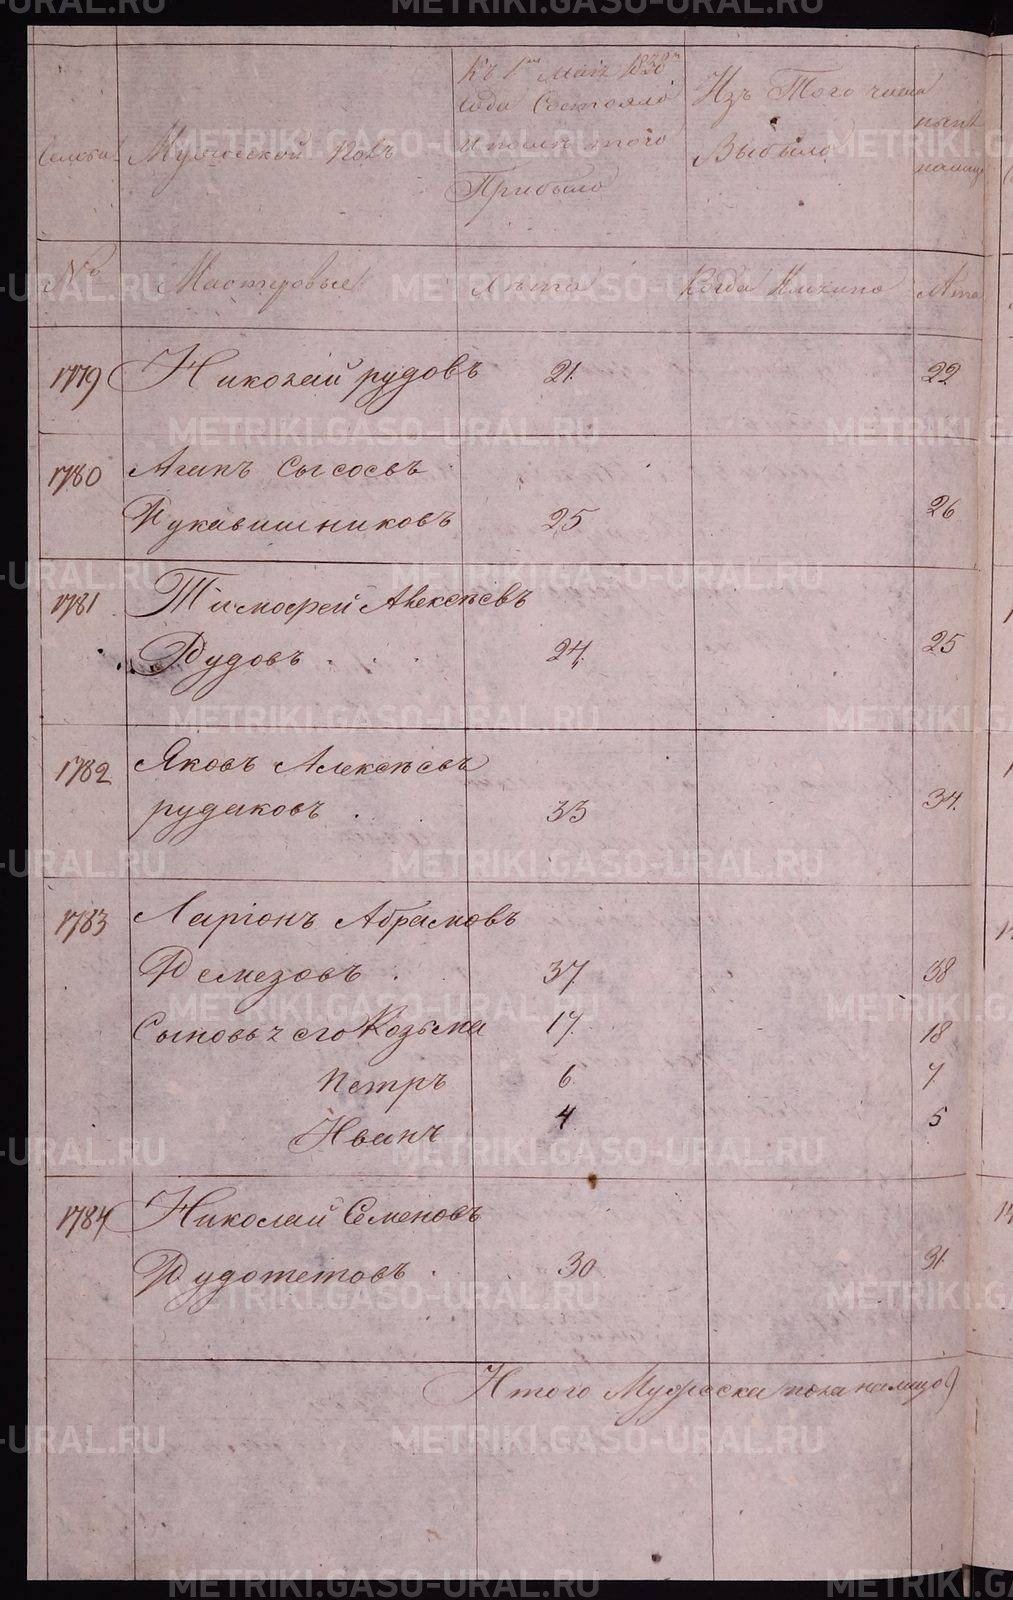 Къ 1ое Маія 1838го
Года Состояло
и после того
Прибыло
Изъ Того числа
Выбыло
ныне
налицо
Семьи
Мужеской полъ
№
Мастеровые
Лѣта
Когда Имянно
Лѣта
1779 Николай рудовъ 21. 22
1780 Агапъ Сысоевъ
Рукавишниковъ 25 26
1781 Тимофей Алексѣевъ
Рудовъ 24. 25
1782 Яковъ Алексѣевъ
рудаковъ 33 34.
1783 Ларіонъ Абрамовъ
Ремезовъ 37 38
Сыновья его Козьма 17. 18
Петръ 6 7
Иванъ 4 5
1784 Николай Семеновъ
Рудометовъ 30 31.
Итого Мужеска пола налицо
METRIKI.GASO-URAL.RU